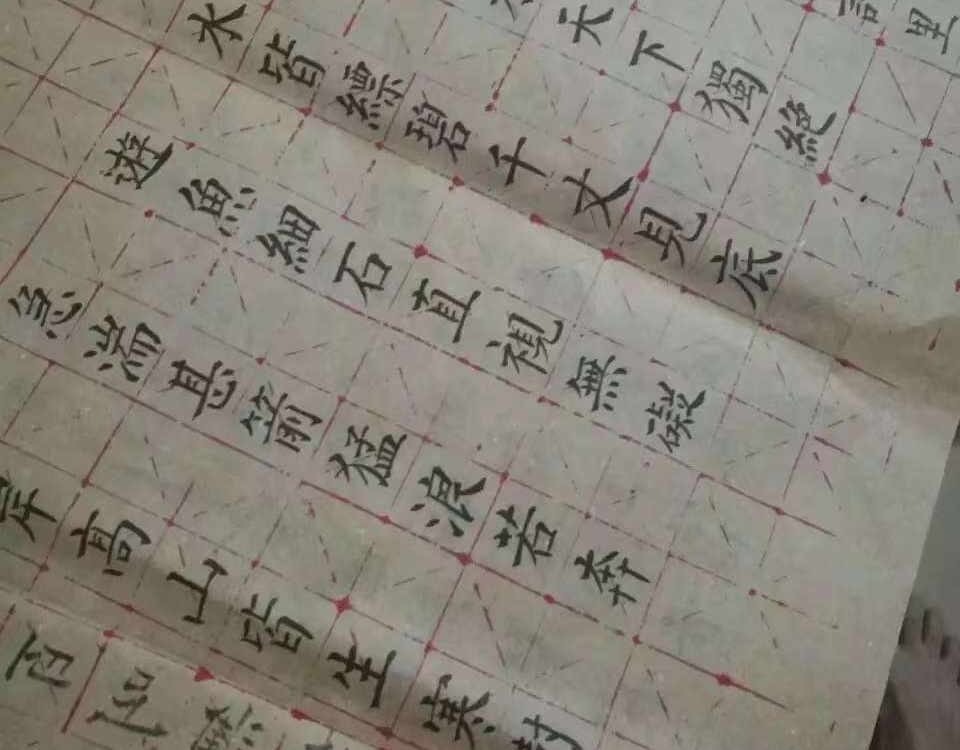 里
天下獨絕
水皆縹碧千丈見底
遊魚細石直視無礙
急湍甚箭猛浪若奔
岸高山皆生寒